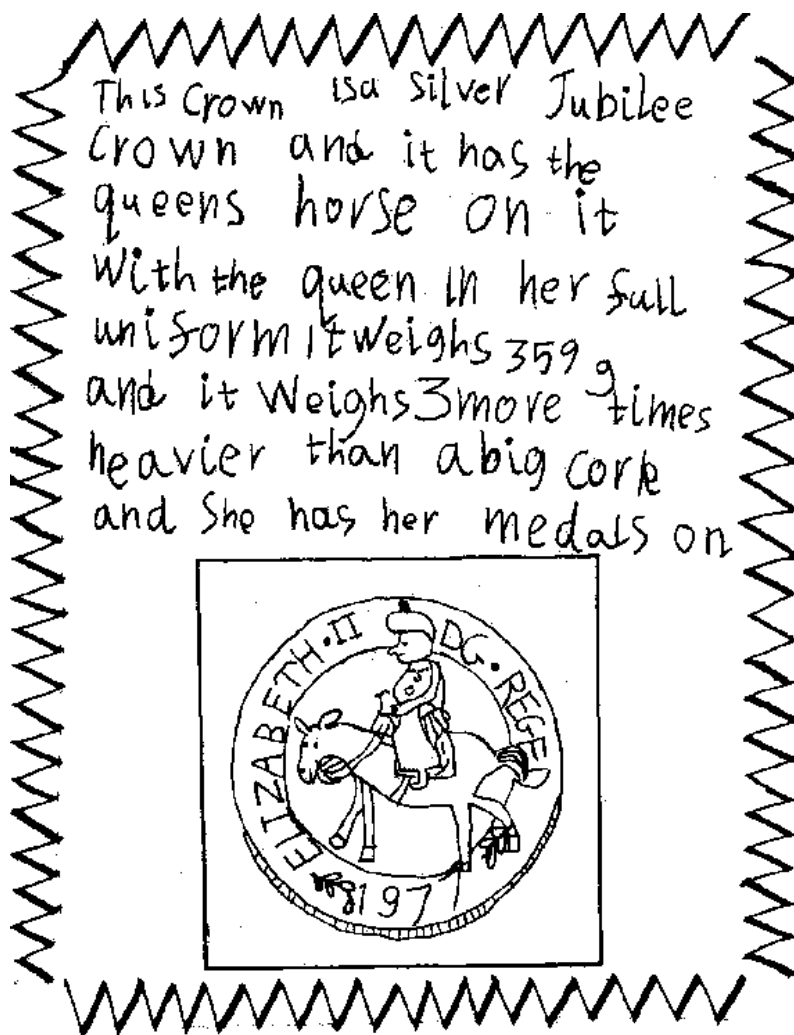 This Crown isa Silver Jubilee
Crown and it has the
queens horse on it
With the queen in her full
uniform itweighs 359 g
and it Weighs 3 more times
heavier than abig cork
and She has her medals on
ELIZABETH·II DG·REGE
1977